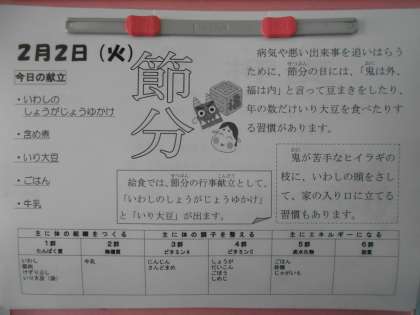 2月2日（火）
今日の献立
・いわしの
しょうがじょうゆかけ
・含め煮
・いり大豆
・ごはん
・牛乳
節分
病気や悪い出来事を追いはらう
ために、節分の日には、「鬼は外、
福は内」と言って豆まきをしたり、
年の数だけいり大豆を食べたりす
る習慣があります。
鬼が苦手なヒイラギの
枝に、いわしの頭をさし
て、家の入り口に立てる
習慣もあります。
給食では、節分の行事献立として、
「いわしのしょうがじょうゆかけ」
と「いり大豆」が出ます。
主に体の組織をつくる 主に体の調子を整える 主にエネルギーになる
1群 2群 3群 4群 5群 6群
たんぱく質 無機質 ビタミンA ビタミンC 炭水化物 脂質
いわし 牛乳 にんじん しょうが ごはん
さんどまめ だいこん 砂糖
けずりぶし ごぼう じゃがいも
いり大豆（袋） しめじ